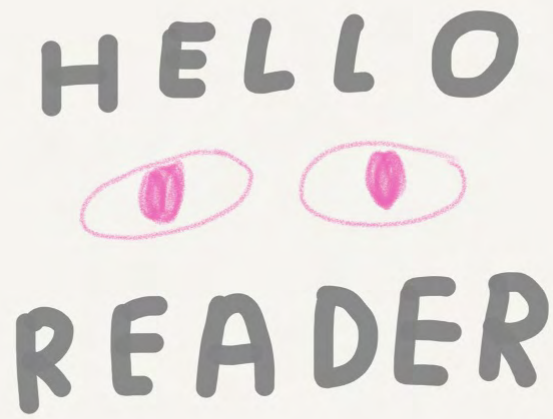 HELLO
READER